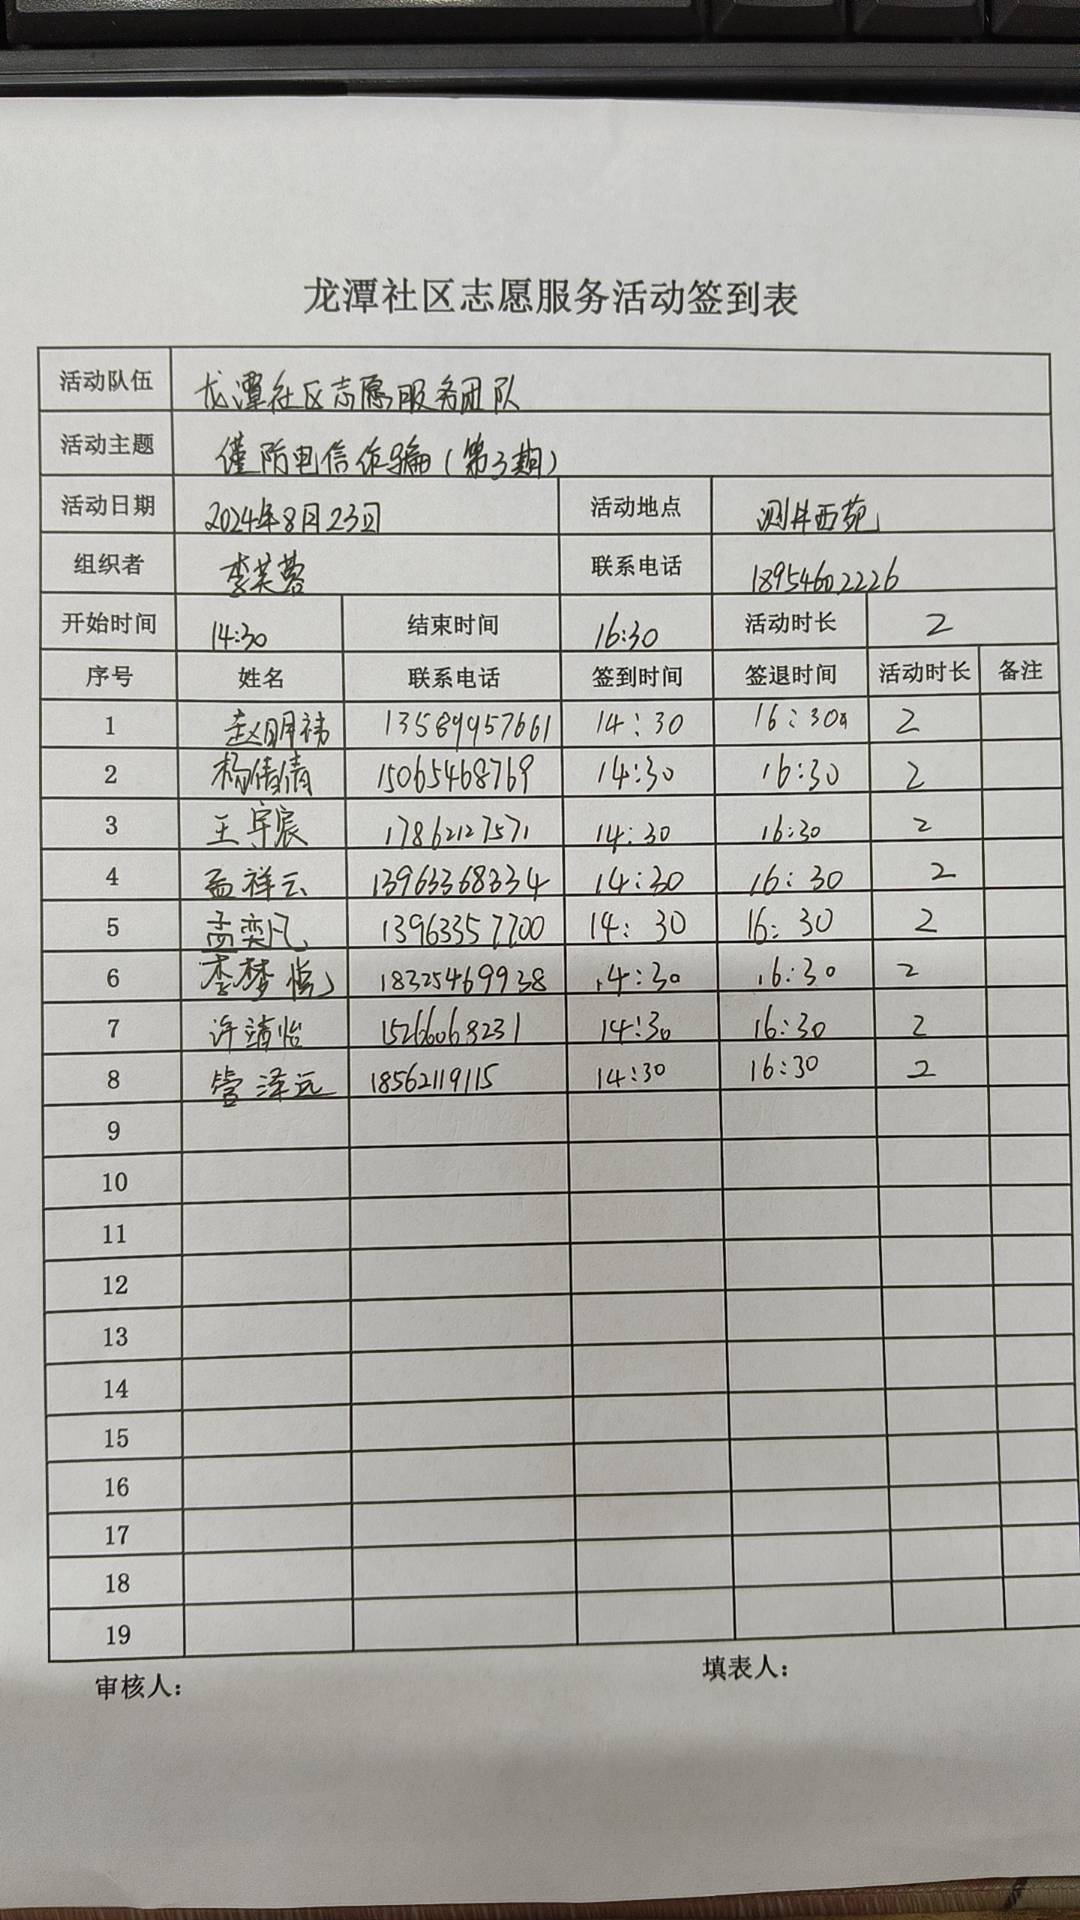 龙潭社区志愿服务活动签到表
活动队伍 龙潭社区志愿服务团队
活动主题 谨防电信诈骗(第3期)
活动日期 2024年8月23日 活动地点 测井西苑
组织者 李芙蓉 联系电话 18954602226
开始时间 14:30 结束时间 16:30 活动时长 2
序号 姓名 联系电话 签到时间 签退时间 活动时长 备注
1 赵明祎 13589957661 14:30 16:30 2
2 杨倩倩 15065468769 14:30 16:30 2
3 王宇宸 17862127571 14:30 16:30 2
4 孟祥云 13963368334 14:30 16:30 2
5 孟奕凡 13963357700 14:30 16:30 2
6 李梦悦 18325469938 14:30 16:30 2
7 许靖怡 15266068231 14:30 16:30 2
8 管泽远 18562119115 14:30 16:30 2
9
10
11
12
13
14
15
16
17
18
19
审核人: 填表人: